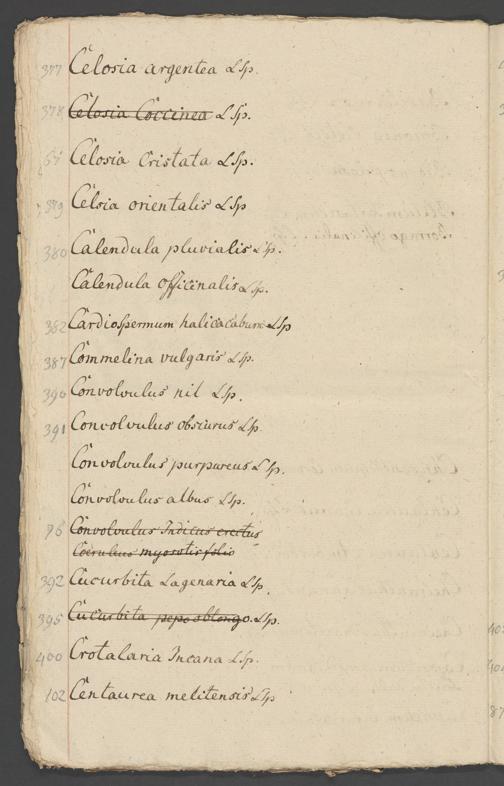 377 Celosia argentea LSp.
378 Celosia Coccinea LSp.
Celosia Cristata LSp.
379 Celsia orientalis LSp
380 Calendula pluvialis LSp.
Calendula officinalis LSp.
382 Cardiospermum halicacabum LSp
387 Commelina vulgaris LSp.
390 Convolvulus nil LSp.
391 Convolvulus obscurus LSp
Convolvulus purpureus LSp.
Convolvulus albus LSp.
96 Convolvulus Indicus erectus
Coeruleus myosotis folio
392 Cucurbita Lagenaria LSp.
395 Cucurbita pepo oblongo. LSp.
400 Crotalaria Incana LSp.
102 Centaurea melitensis LSp